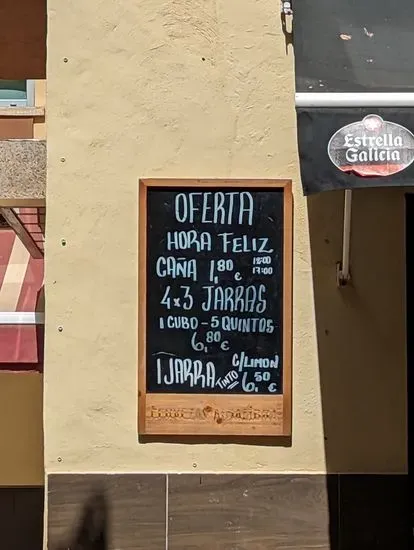 OFERTA
HORA FELIZ
CAÑA 1,80 €
17:00
4x3 JARRAS
1 CUBO - 5 QUINTOS
6,80 €
1 JARRA TINTO
C/LIMON
6,50 €
CERVEZAS ALHAMBRA
Estrella
Galicia